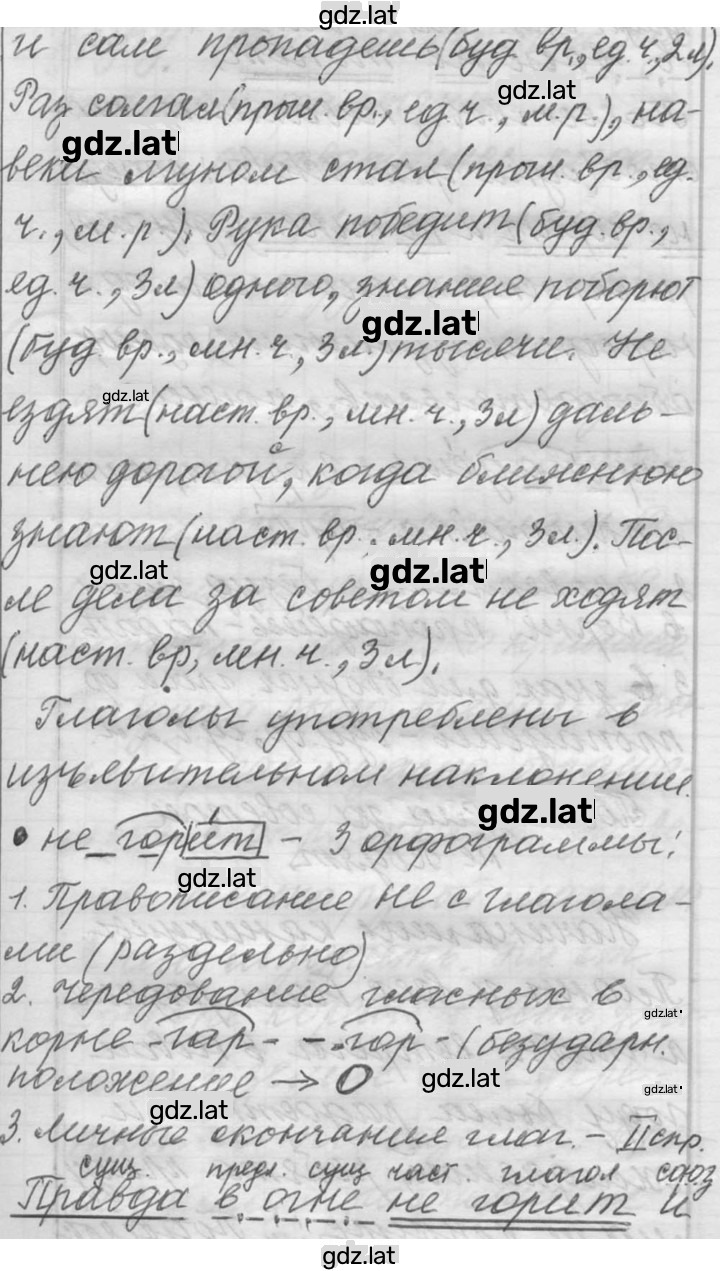 gdz.lat
и сам пропадешь (буд вр., ед. ч., 2 л).
gdz.lat
Раз солгал (прош. вр., ед. ч., м. р.), на-
gdz.lat
веки лгуном стал (прош. вр., ед.
ч., м. р.). Рука победит (буд. вр.,
ед. ч., 3 л) одного, знание поборют
gdz.lat
(буд вр., мн. ч., 3 л.) тысячи. Не
gdz.lat
ездят (наст. вр., мн. ч., 3 л) даль-
нею дорогой, когда ближнюю
знают (наст. вр., мн. ч., 3 л.). Пос-
gdz.lat gdz.lat
ле дела за советом не ходят
(наст. вр, мн. ч., 3 л).
Глаголы употреблены в
изъявительном наклонении.
gdz.lat
• не горит – 3 орфограммы:
gdz.lat
1. Правописание не с глагола-
ми (раздельно)
2. Чередование гласных в
gdz.lat
корне -гар- - -гор- (безударн.
положение → О
gdz.lat
gdz.lat
gdz.lat
3. Личные окончания глаг. – II спр.
сущ. предл. сущ част. глагол союз
Правда в огне не горит и
gdz.lat